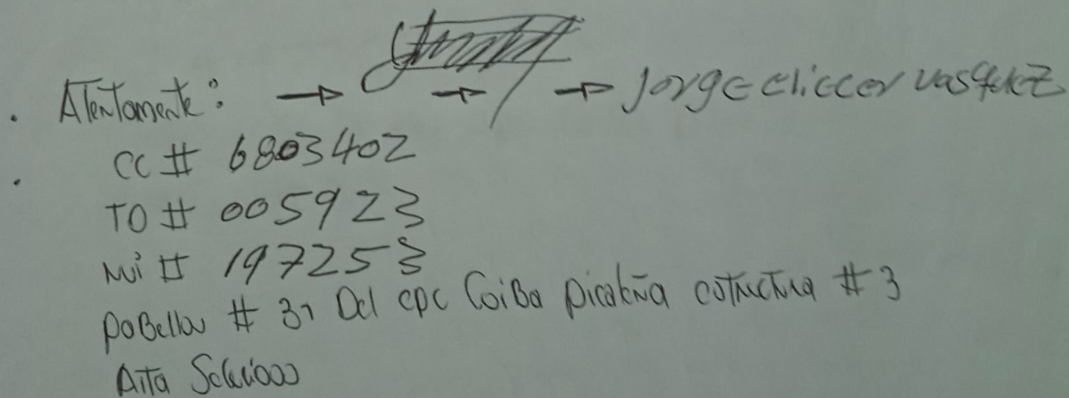 Atentamente: → → → Jorge eliecer vasquez
CC # 6803402
TD # 005923
Nui # 197253
paBellon # 31 Del cpc CoiBa picaleña estructura # 3
Alta